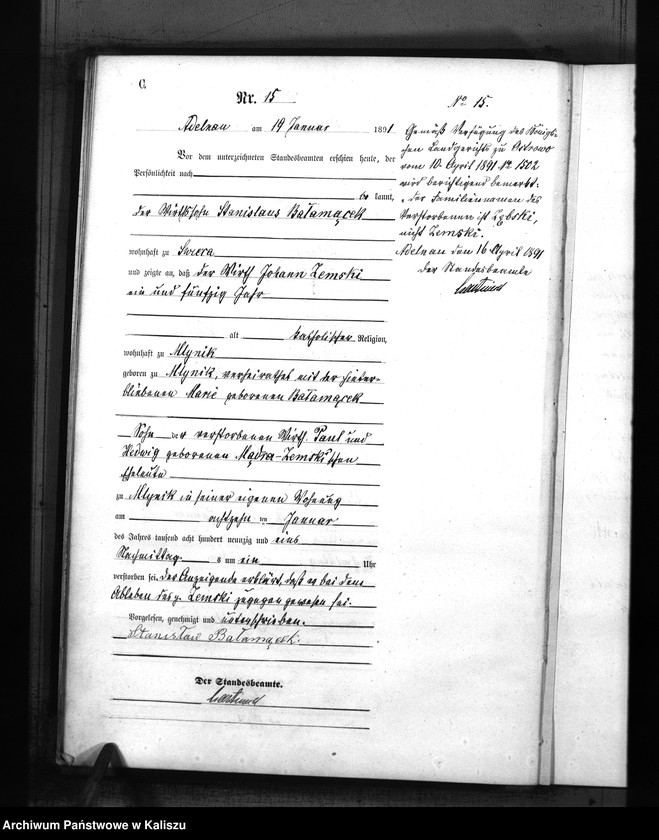 C.
Nr. 15
Adelnau am 19 Januar 1891
Vor dem unterzeichneten Standesbeamten erschien heute, der
Persönlichkeit nach
be kannt,
der Wirthssohn Stanislaus Bałamącek
wohnhaft zu
und zeigte an, daß der Wirth Johann Zemski
ein und fünfzig Jahr
alt katholischer Religion,
wohnhaft zu Młynik
geboren zu Młynik, verheirathet mit der hinter-
bliebenen Marie geborenen Bałamącek
Sohn der verstorbenen Wirth Paul und
Hedwig geborenen Mądra-Zemski'schen
Eheleute
zu Młynik in seiner eigenen Wohnung
am achtzehn ten Januar
des Jahres tausend acht hundert neunzig und eins
Nachmittag s um ein Uhr
verstorben sei. Der Anzeigende erklärt, daß er bei dem
Ableben des p. Zemski zugegen gewesen sei.
Vorgelesen, genehmigt und unterschrieben.
Stanisław Bałamącek.
Der Standesbeamte.
No 15.
Gemäß Verfügung des Königli-
chen Landgerichts zu Ostrowo
vom 10. April 1891 No 1502
wird berichtigend bemerkt:
der Familiennamen des
Verstorbenen ist
nicht Zemski.
Adelnau den 16 April 1891
Der Standesbeamte
Archiwum Państwowe w Kaliszu